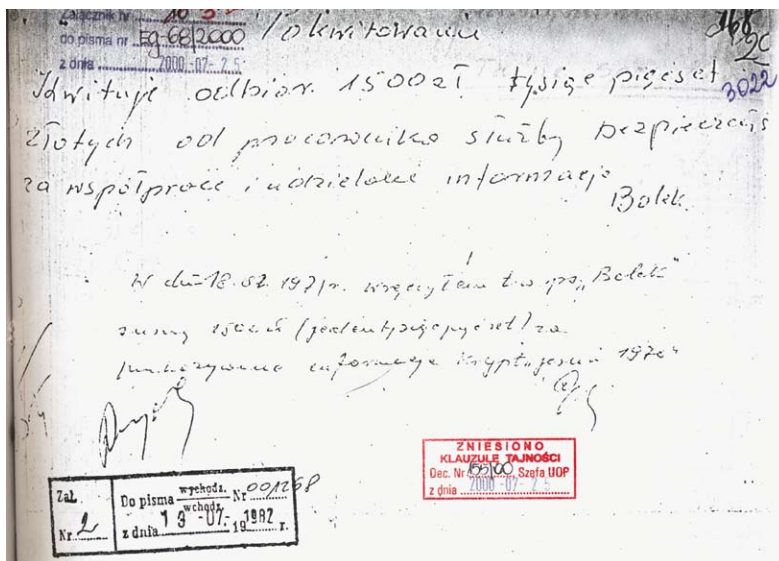 Załącznik nr 10
do pisma nr Eg-68/2000
z dnia 2000 -07- 2 5
Pokwitowanie
168
20
3022
Kwituje odbiór. 1500 zł tysiąc pięćset
złotych od pracownika służby bezpieczeńs
za współprace i udzielone informacje
Bolek.
W dn. 18.01.1971r. wręczyłem t.w. ps. „Bolek"
sumę 1500 zł (jeden tysiąc pięćset) za
informacje krypt. jesień 1970"
ZNIESIONO
KLAUZULĘ TAJNOŚCI
Dec. Nr 155/00 Szefa UOP
z dnia 2000 -07- 2 5
Zał.
Nr 2
Do pisma wychodz. wchodz. Nr 001268
z dnia 1 3 -07- 1982 r.